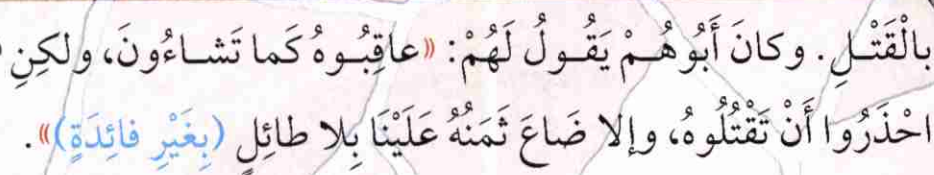 بِالْقَتْلِ. وكانَ أَبُوهُمْ يَقُولُ لَهُمْ: «عاقِبُوهُ كَما تَشاءُونَ، ولكِنِ
احْذَرُوا أَنْ تَقْتُلُوهُ، وإلا ضَاعَ ثَمَنُهُ عَلَيْنَا بِلا طائِلٍ (بِغَيْرِ فائِدَةٍ)».